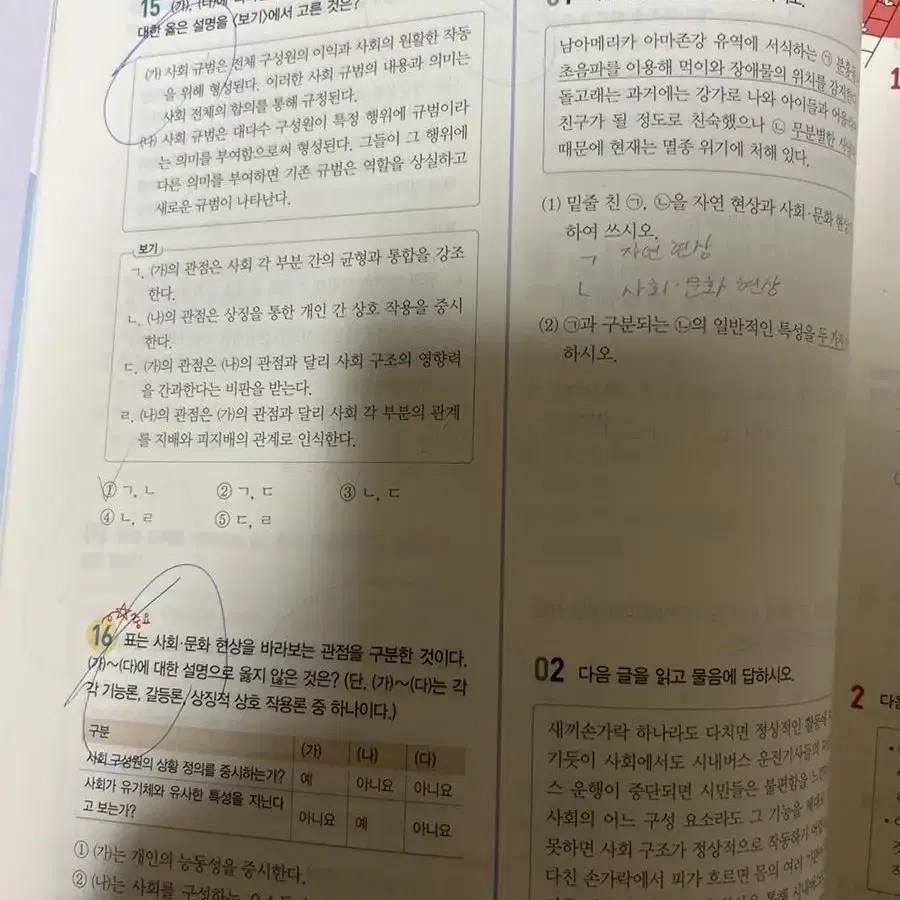 15
대한 옳은 설명을 〈보기〉에서 고른 것은?
(가) 사회 규범은 전체 구성원의 이익과 사회의 원활한 작동
을 위해 형성된다. 이러한 사회 규범의 내용과 의미는
사회 전체의 합의를 통해 규정된다.
(나) 사회 규범은 대다수 구성원이 특정 행위에 규범이라
는 의미를 부여함으로써 형성된다. 그들이 그 행위에
다른 의미를 부여하면 기존 규범은 역할을 상실하고
새로운 규범이 나타난다.
보기
ㄱ. (가)의 관점은 사회 각 부분 간의 균형과 통합을 강조
한다.
ㄴ. (나)의 관점은 상징을 통한 개인 간 상호 작용을 중시
한다.
ㄷ. (가)의 관점은 (나)의 관점과 달리 사회 구조의 영향력
을 간과한다는 비판을 받는다.
ㄹ. (나)의 관점은 (가)의 관점과 달리 사회 각 부분의 관계
를 지배와 피지배의 관계로 인식한다.
① ㄱ, ㄴ ② ㄱ, ㄷ ③ ㄴ, ㄷ
④ ㄴ, ㄹ ⑤ ㄷ, ㄹ
중요
16 표는 사회·문화 현상을 바라보는 관점을 구분한 것이다.
(가)~(다)에 대한 설명으로 옳지 않은 것은? (단, (가)~(다)는 각
각 기능론, 갈등론, 상징적 상호 작용론 중 하나이다.)
구분 (가) (나) (다)
사회 구성원의 상황 정의를 중시하는가? 예 아니요 아니요
사회가 유기체와 유사한 특성을 지닌다
고 보는가? 아니요 예 아니요
① (가)는 개인의 능동성을 중시한다.
② (나)는 사회를 구성하는
남아메리카 아마존강 유역에 서식하는 ㉠
초음파를 이용해 먹이와 장애물의 위치를
돌고래는 과거에는 강가로 나와 아이들과
친구가 될 정도로 친숙했으나 ㉡ 무분별한
때문에 현재는 멸종 위기에 처해 있다.
(1) 밑줄 친 ㉠, ㉡을 자연 현상과 사회·문화
하여 쓰시오.
ㄱ 자연 현상
ㄴ 사회·문화 현상
(2) ㉠과 구분되는 ㉡의 일반적인 특성을 두
하시오.
02 다음 글을 읽고 물음에 답하시오.
새끼손가락 하나라도 다치면 정상적인
기듯이 사회에서도 시내버스 운전기사들의
스 운행이 중단되면 시민들은 불편함을
사회의 어느 구성 요소라도 그 기능을
못하면 사회 구조가 정상적으로 작동하기
다친 손가락에서 피가 흐르면 몸의 여러
1
2